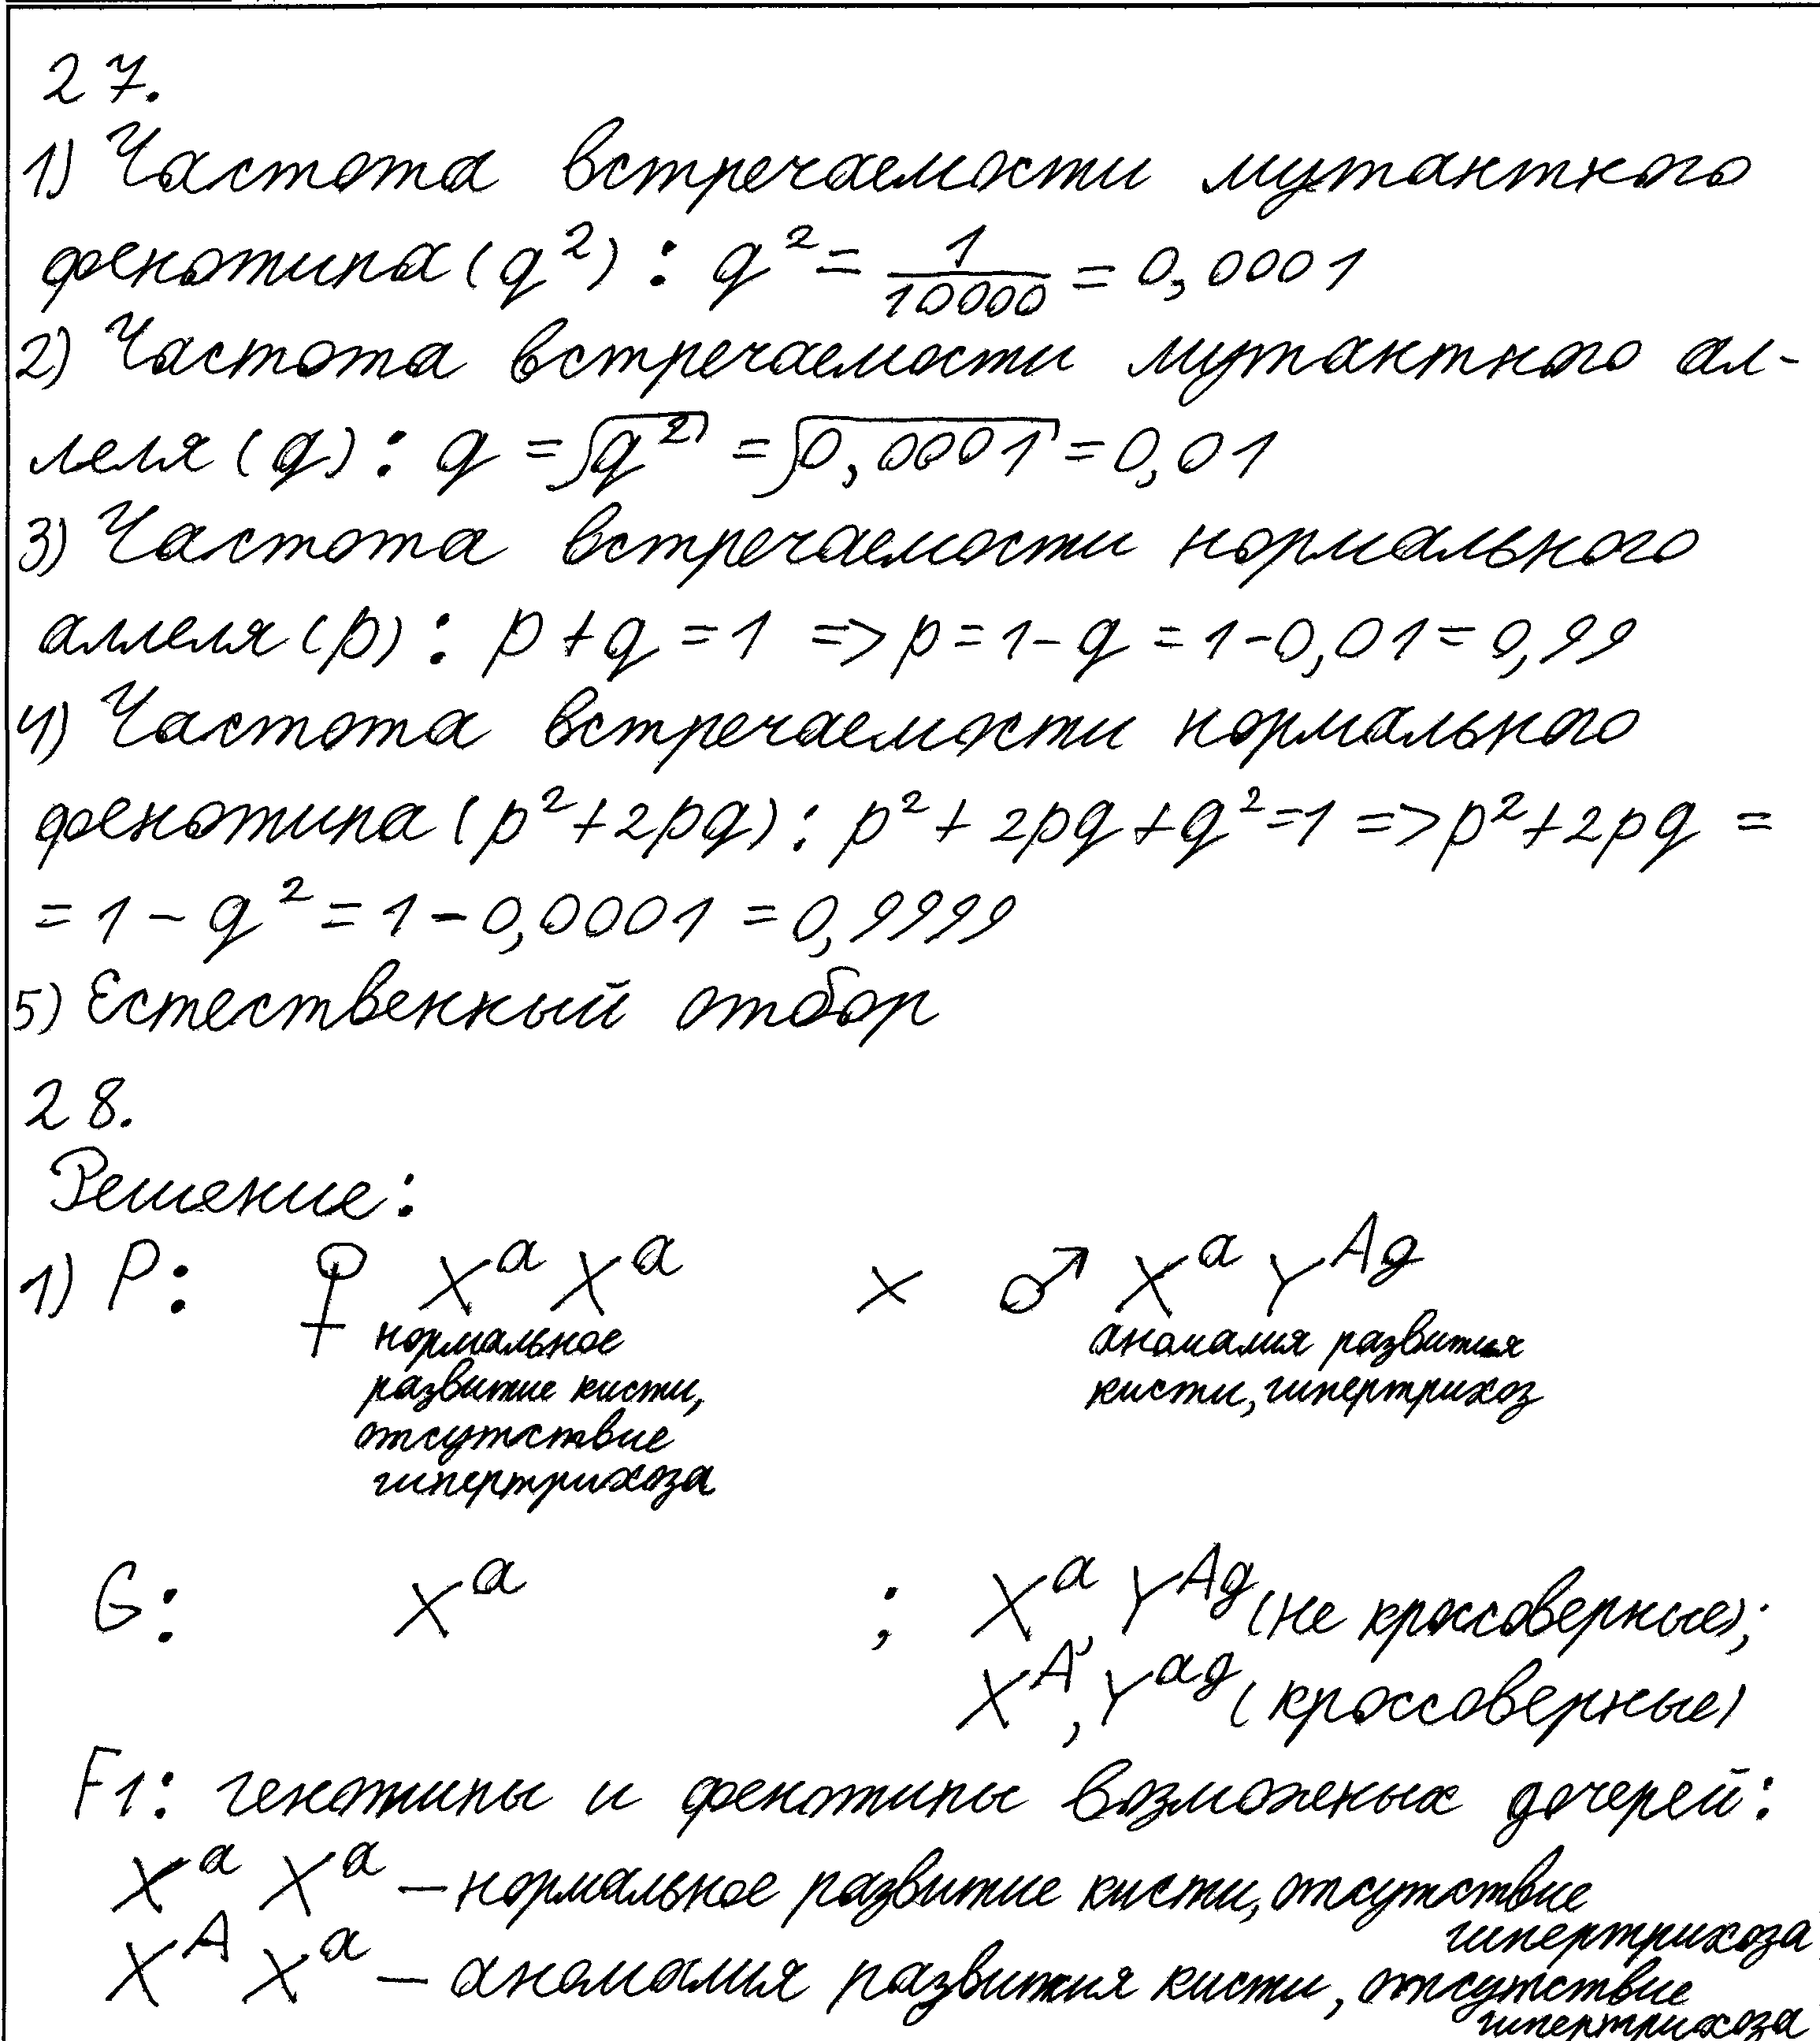 27.
1) Частота встречаемости мутантного
фенотипа (q²) : q² = 1/10000 = 0,0001
2) Частота встречаемости мутантного ал-
леля (q) : q = √q² = √0,0001 = 0,01
3) Частота встречаемости нормального
аллеля (p) : p + q = 1 => p = 1 - q = 1 - 0,01 = 0,99
4) Частота встречаемости нормального
фенотипа (p² + 2pq) : p² + 2pq + q² = 1 => p² + 2pq =
= 1 - q² = 1 - 0,0001 = 0,9999
5) Естественный отбор
28.
Решение:
1) P: ♀ XᵃXᵃ × ♂ XᵃYᴬᵍ
нормальное развитие кисти, отсутствие гипертрихоза
аномалия развития кисти, гипертрихоз
G: Xᵃ ; Xᵃ, Yᴬᵍ (не кроссоверные);
Xᴬ, Yᵃᵍ (кроссоверные)
F1: генотипы и фенотипы возможных дочерей:
XᵃXᵃ – нормальное развитие кисти, отсутствие
гипертрихоза
XᴬXᵃ – аномалия развития кисти, отсутствие
гипертрихоза